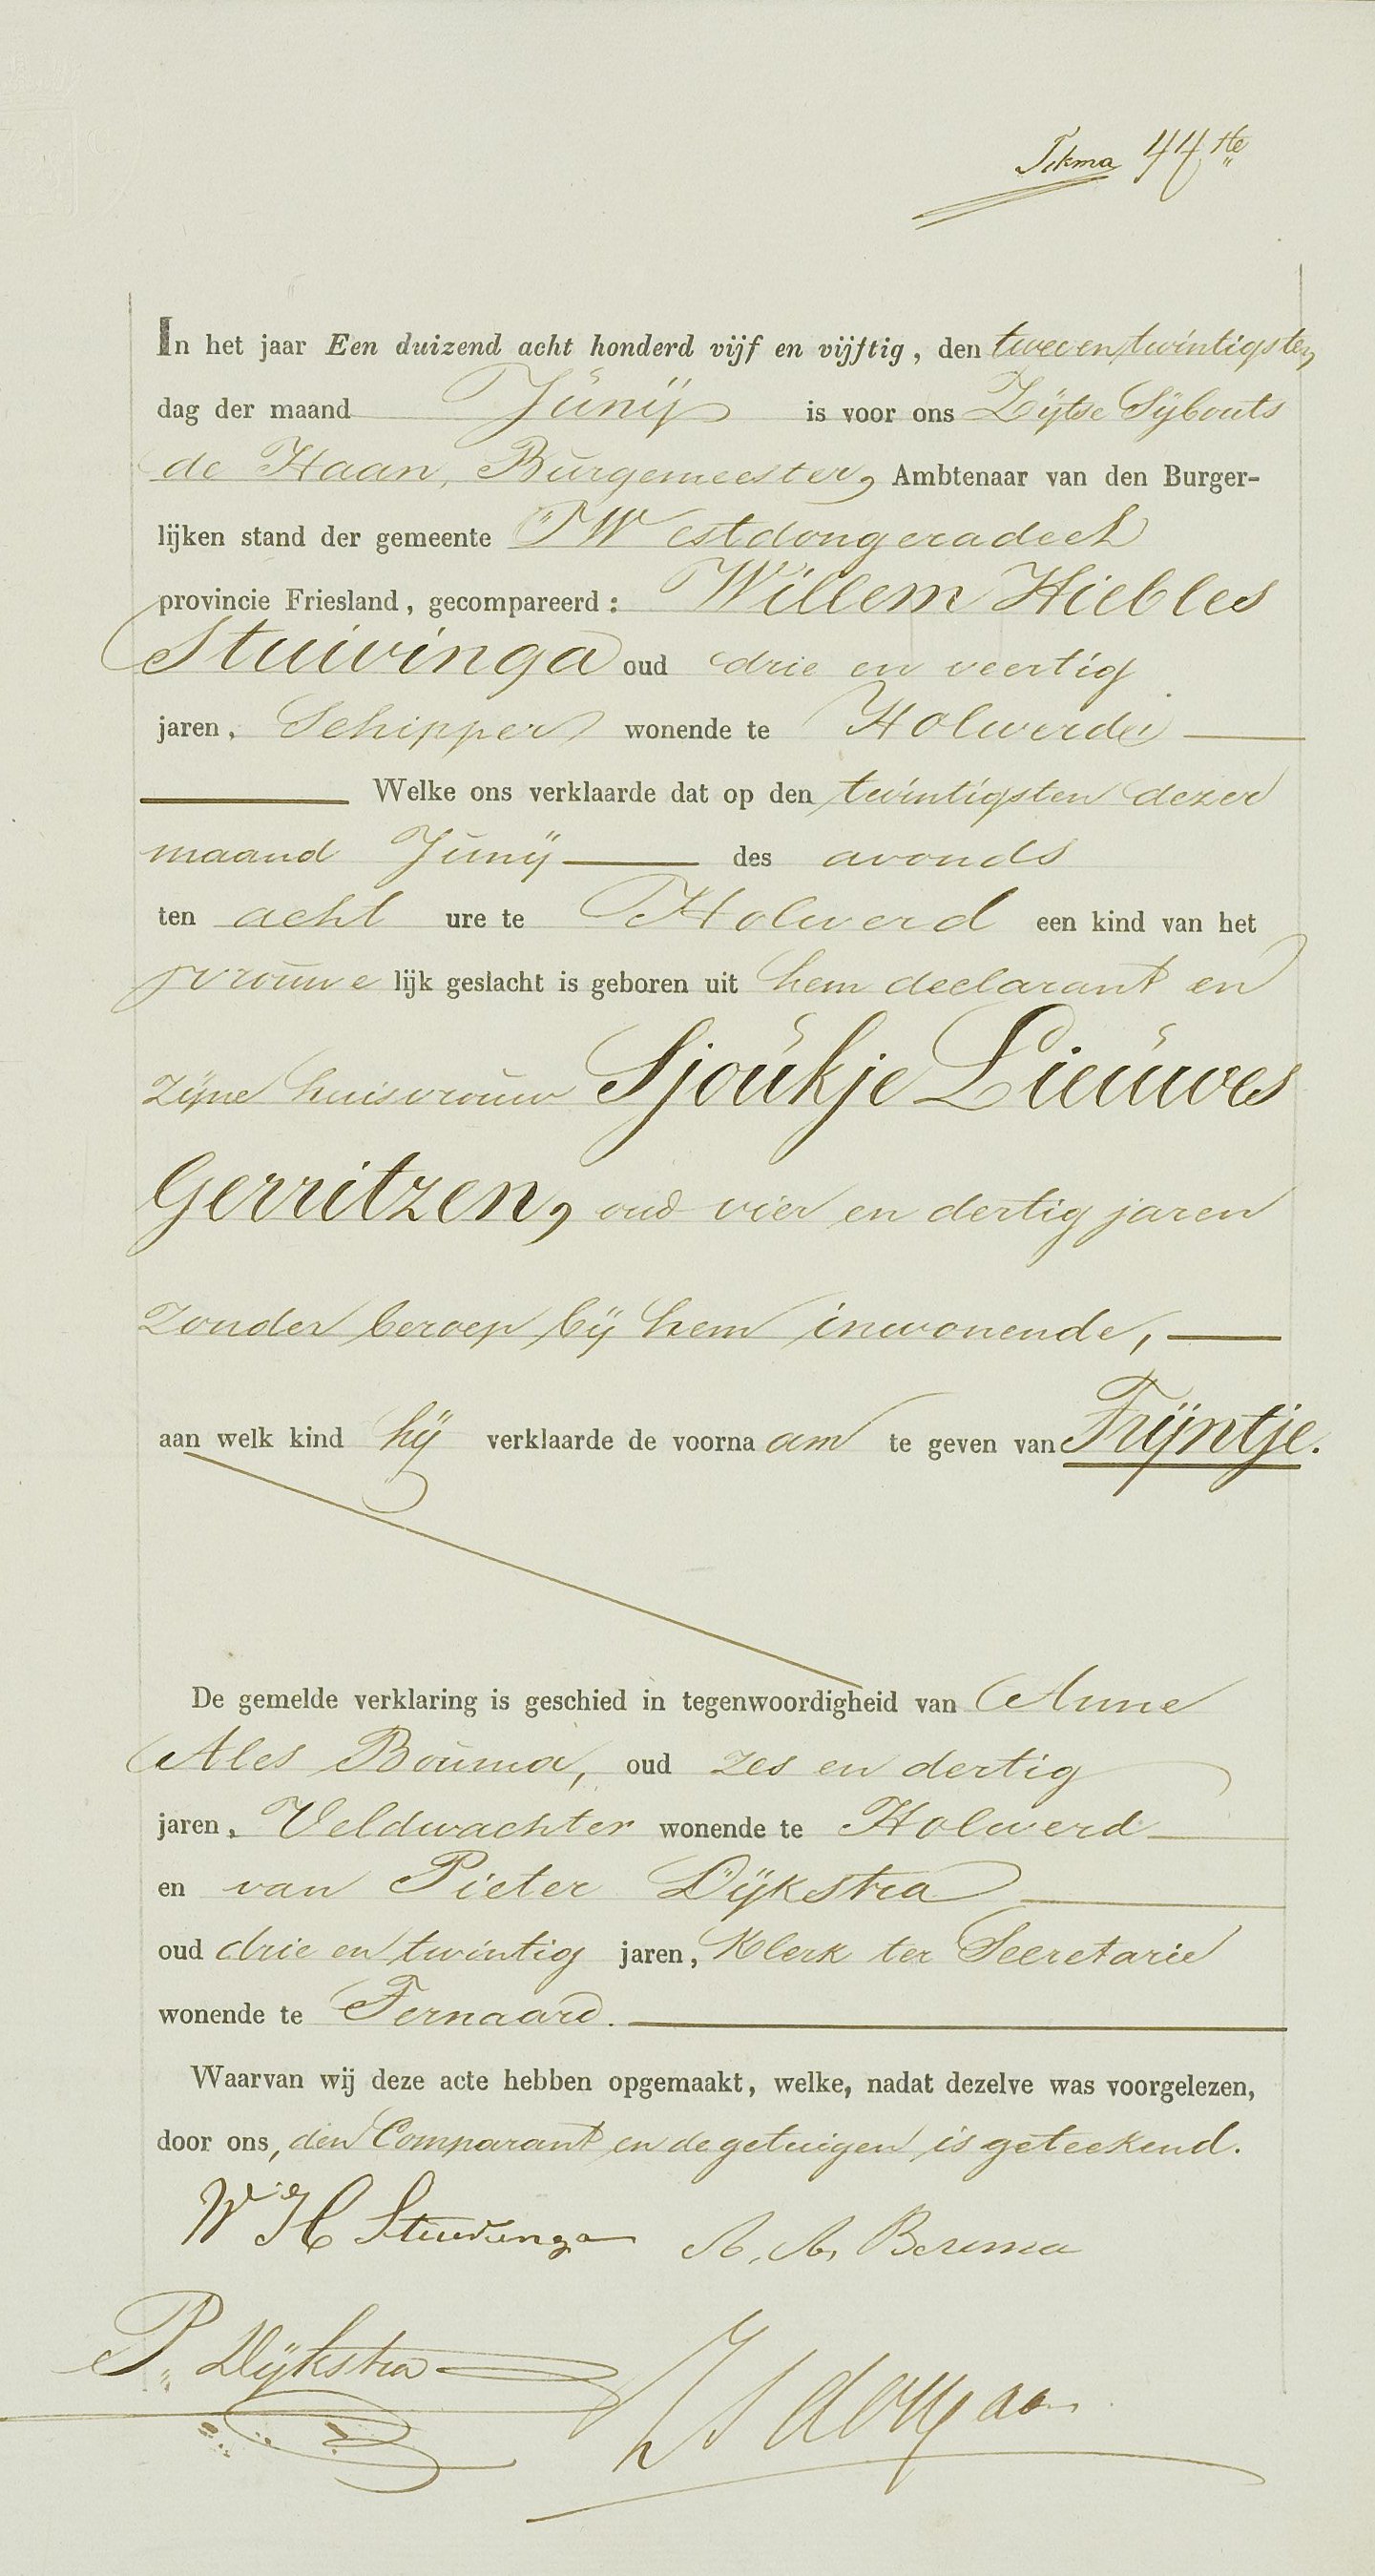 44ste
In het jaar Een duizend acht honderd vijf en vijftig, den twee en twintigsten
dag der maand Junij is voor ons Zijtse Sijbouts
de Haan, Burgemeester, Ambtenaar van den Burger-
lijken stand der gemeente Westdongeradeel
provincie Friesland, gecompareerd: Willem Hiebles
Stuivinga oud drie en veertig
jaren, Schipper wonende te Holwerd
Welke ons verklaarde dat op den twintigsten dezer
maand Junij des avonds
ten acht ure te Holwerd een kind van het
vrouwelijk geslacht is geboren uit hem declarant en
zijne huisvrouw Sjoukje Lieuwes
Gerritzen, oud vier en dertig jaren
zonder beroep bij hem inwonende,
aan welk kind hij verklaarde de voornaam te geven van Trijntje.
De gemelde verklaring is geschied in tegenwoordigheid van Anne
Ales Bouma, oud zes en dertig
jaren, Veldwachter wonende te Holwerd
en van Pieter Dijkstra
oud drie en twintig jaren, Klerk ter Secretarie
wonende te Ternaard.
Waarvan wij deze acte hebben opgemaakt, welke, nadat dezelve was voorgelezen,
door ons, den Comparant en de getuigen is geteekend.
W H Stuivinga A. A. Bouma
P. Dijkstra Z S de Haan